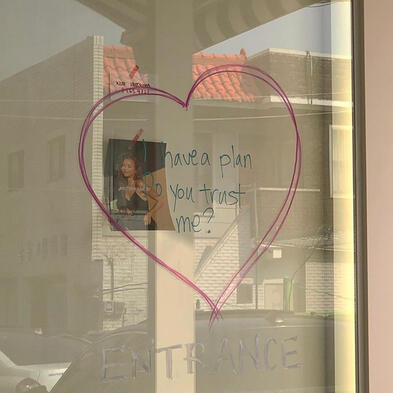 I have a plan
Do you trust
me?
ENTRANCE